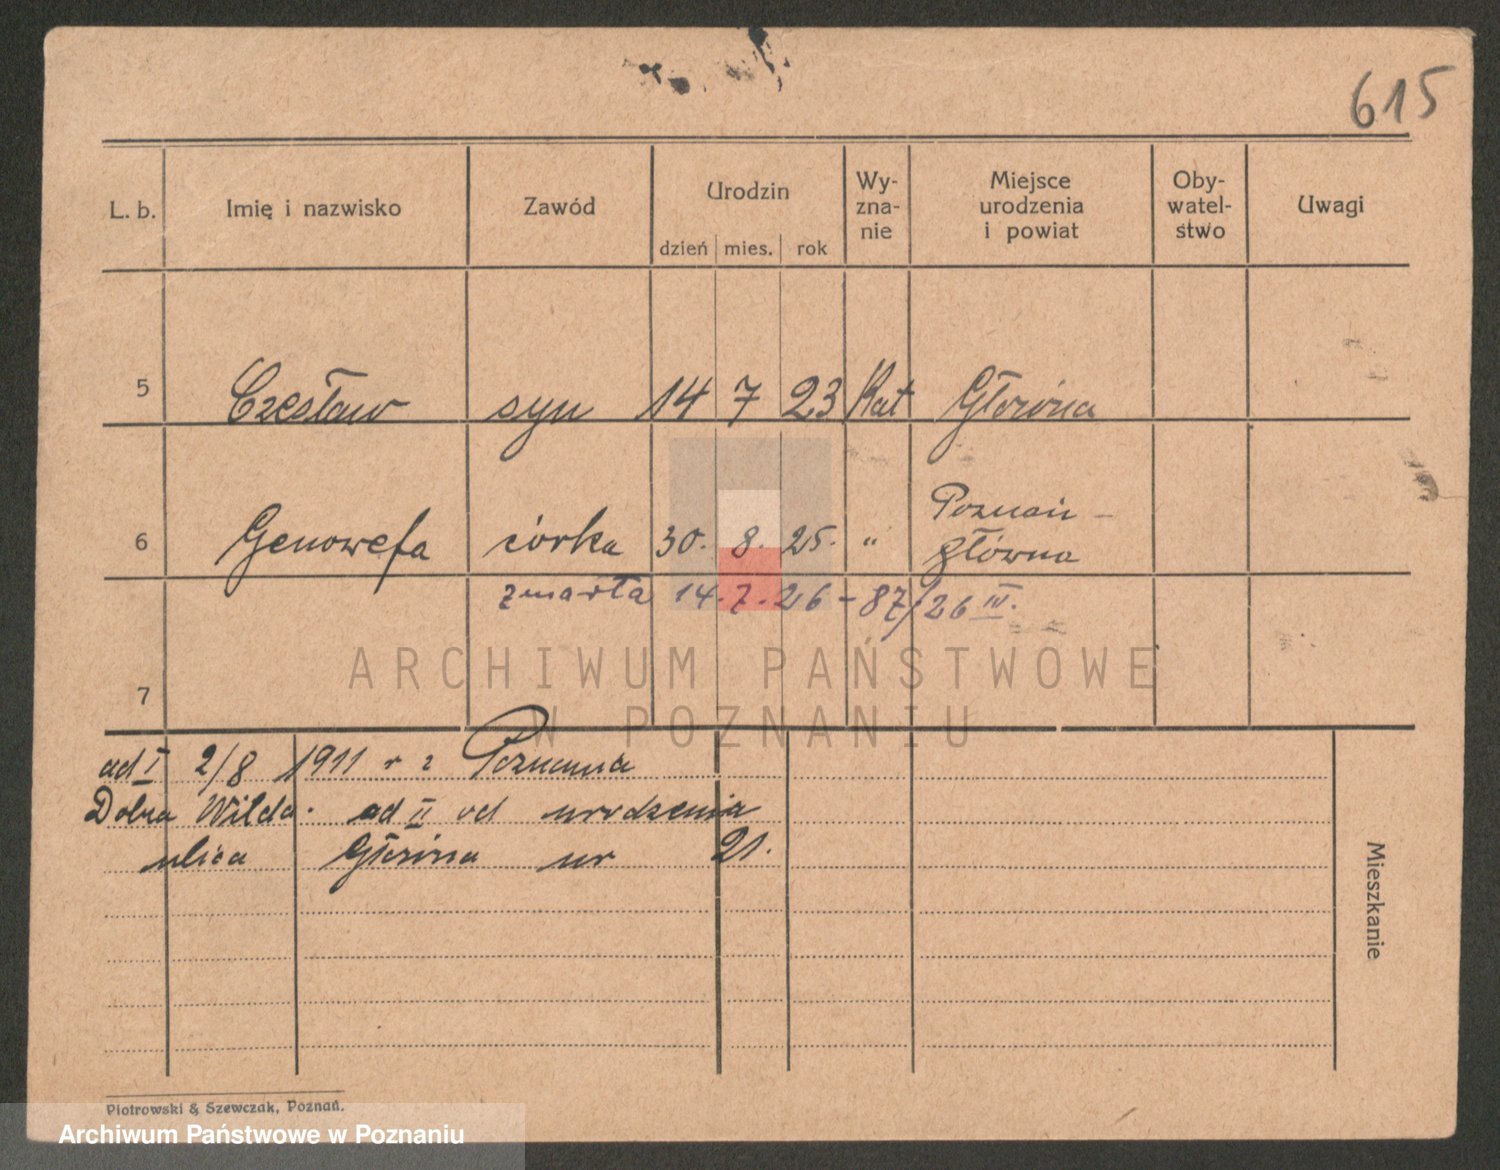 615
L. b. Imię i nazwisko Zawód Urodzin dzień mies. rok Wy-zna-nie Miejsce urodzenia i powiat Oby-watel-stwo Uwagi
5 Czesław syn 14 7 23 Kat Główna
6 Genowefa córka 30. 8. 25. " Poznań –
główna
zmarła 14.7.26 – 87/26 IV.
ARCHIWUM PAŃSTWOWE
7
W POZNANIU
ad I 2/8 1911 r z Poznania
Dolna Wilda. ad II od urodzenia
ulica Główna nr 21.
Mieszkanie
Piotrowski & Szewczak, Poznań.
Archiwum Państwowe w Poznaniu